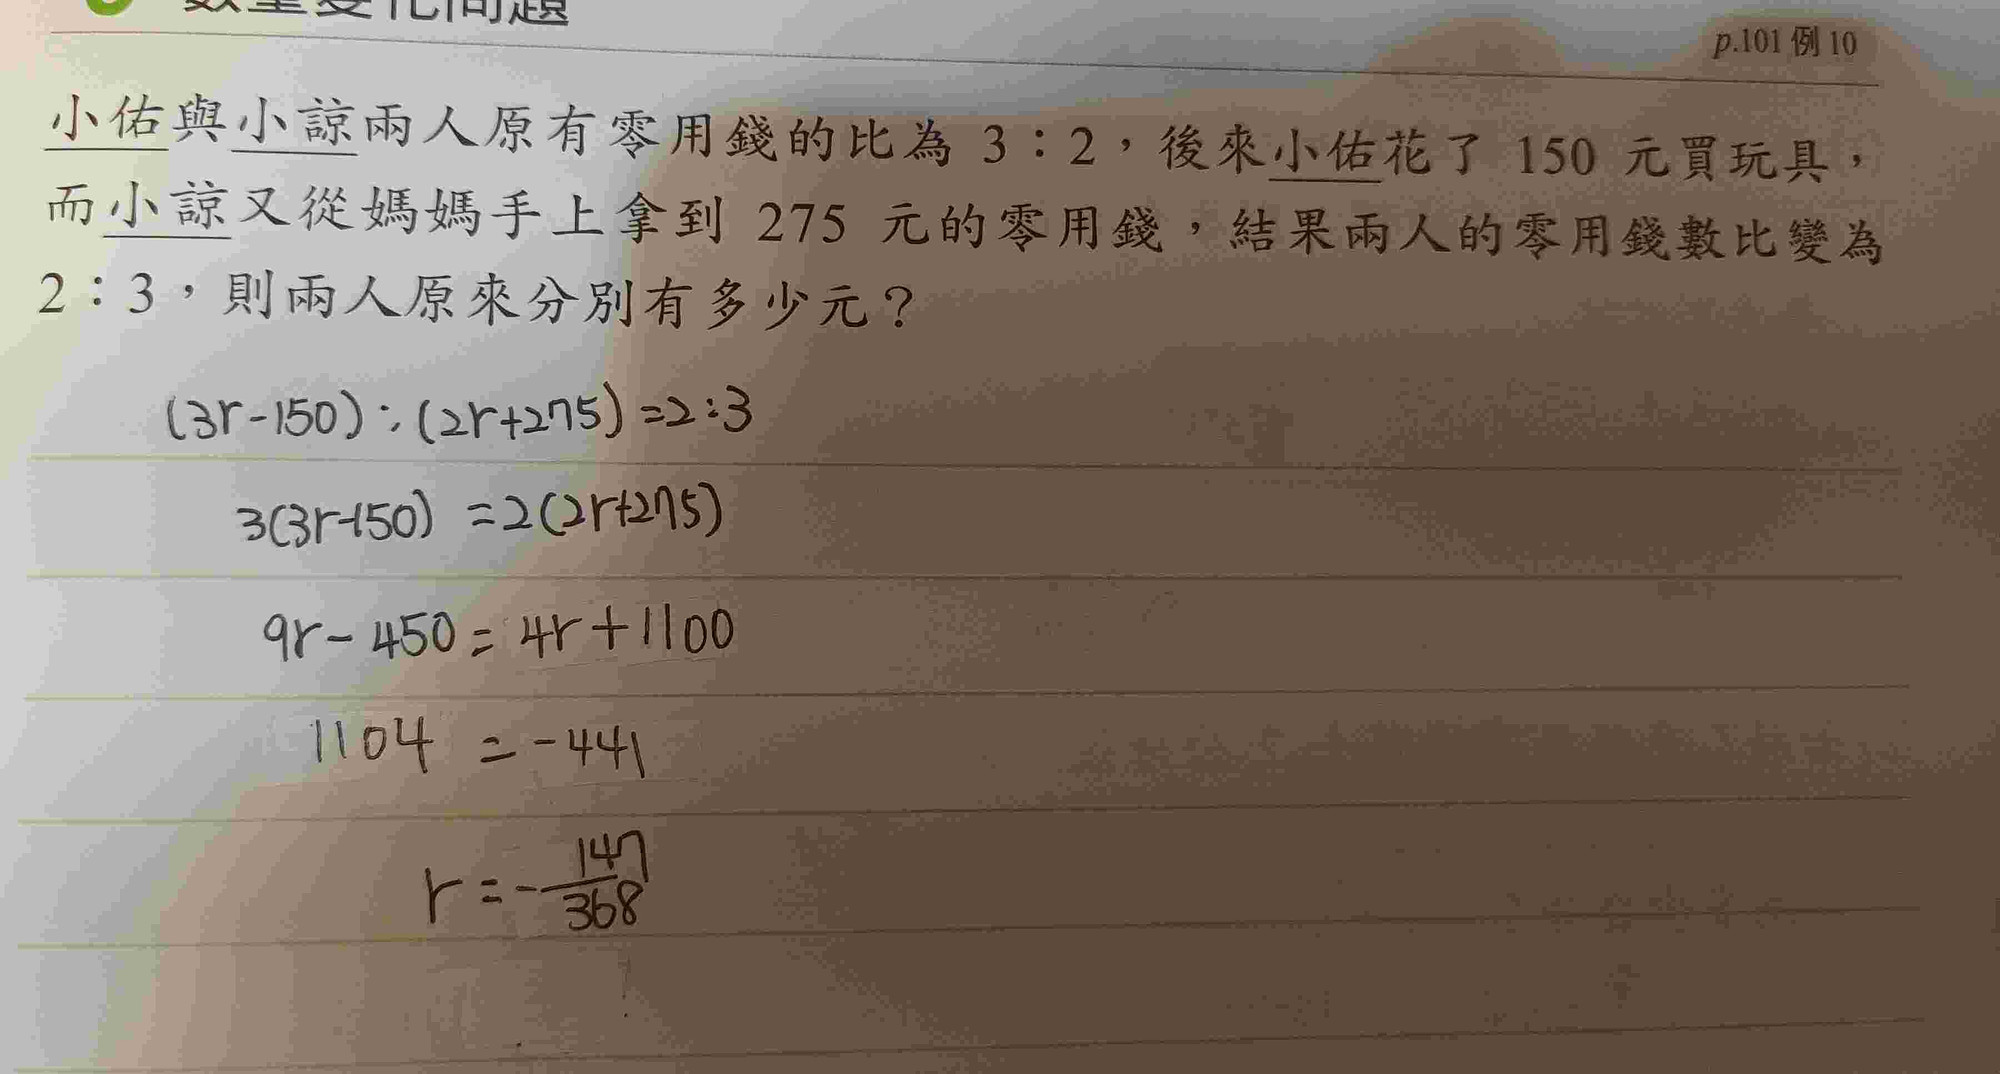 數量變化問題
p.101 例 10
小佑與小諒兩人原有零用錢的比為 3：2，後來小佑花了 150 元買玩具，
而小諒又從媽媽手上拿到 275 元的零用錢，結果兩人的零用錢數比變為
2：3，則兩人原來分別有多少元？
(3r-150):(2r+275)=2:3
3(3r-150) =2(2r+275)
9r-450=4r+1100
1104 =-441
r=-147/368